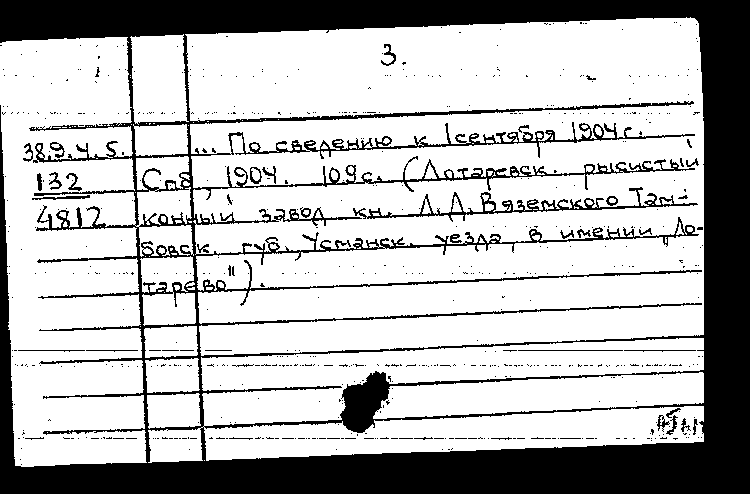 3.
38.9.4.5. ... По сведению к 1 сентября 1904 г.
132 Спб, 1904. 109 с. (Лотаревск. рысистый
4812 конный завод кн. Л.Д. Вяземского Там-
бовск. губ., Усманск. уезда, в имении „Ло-
тарево").